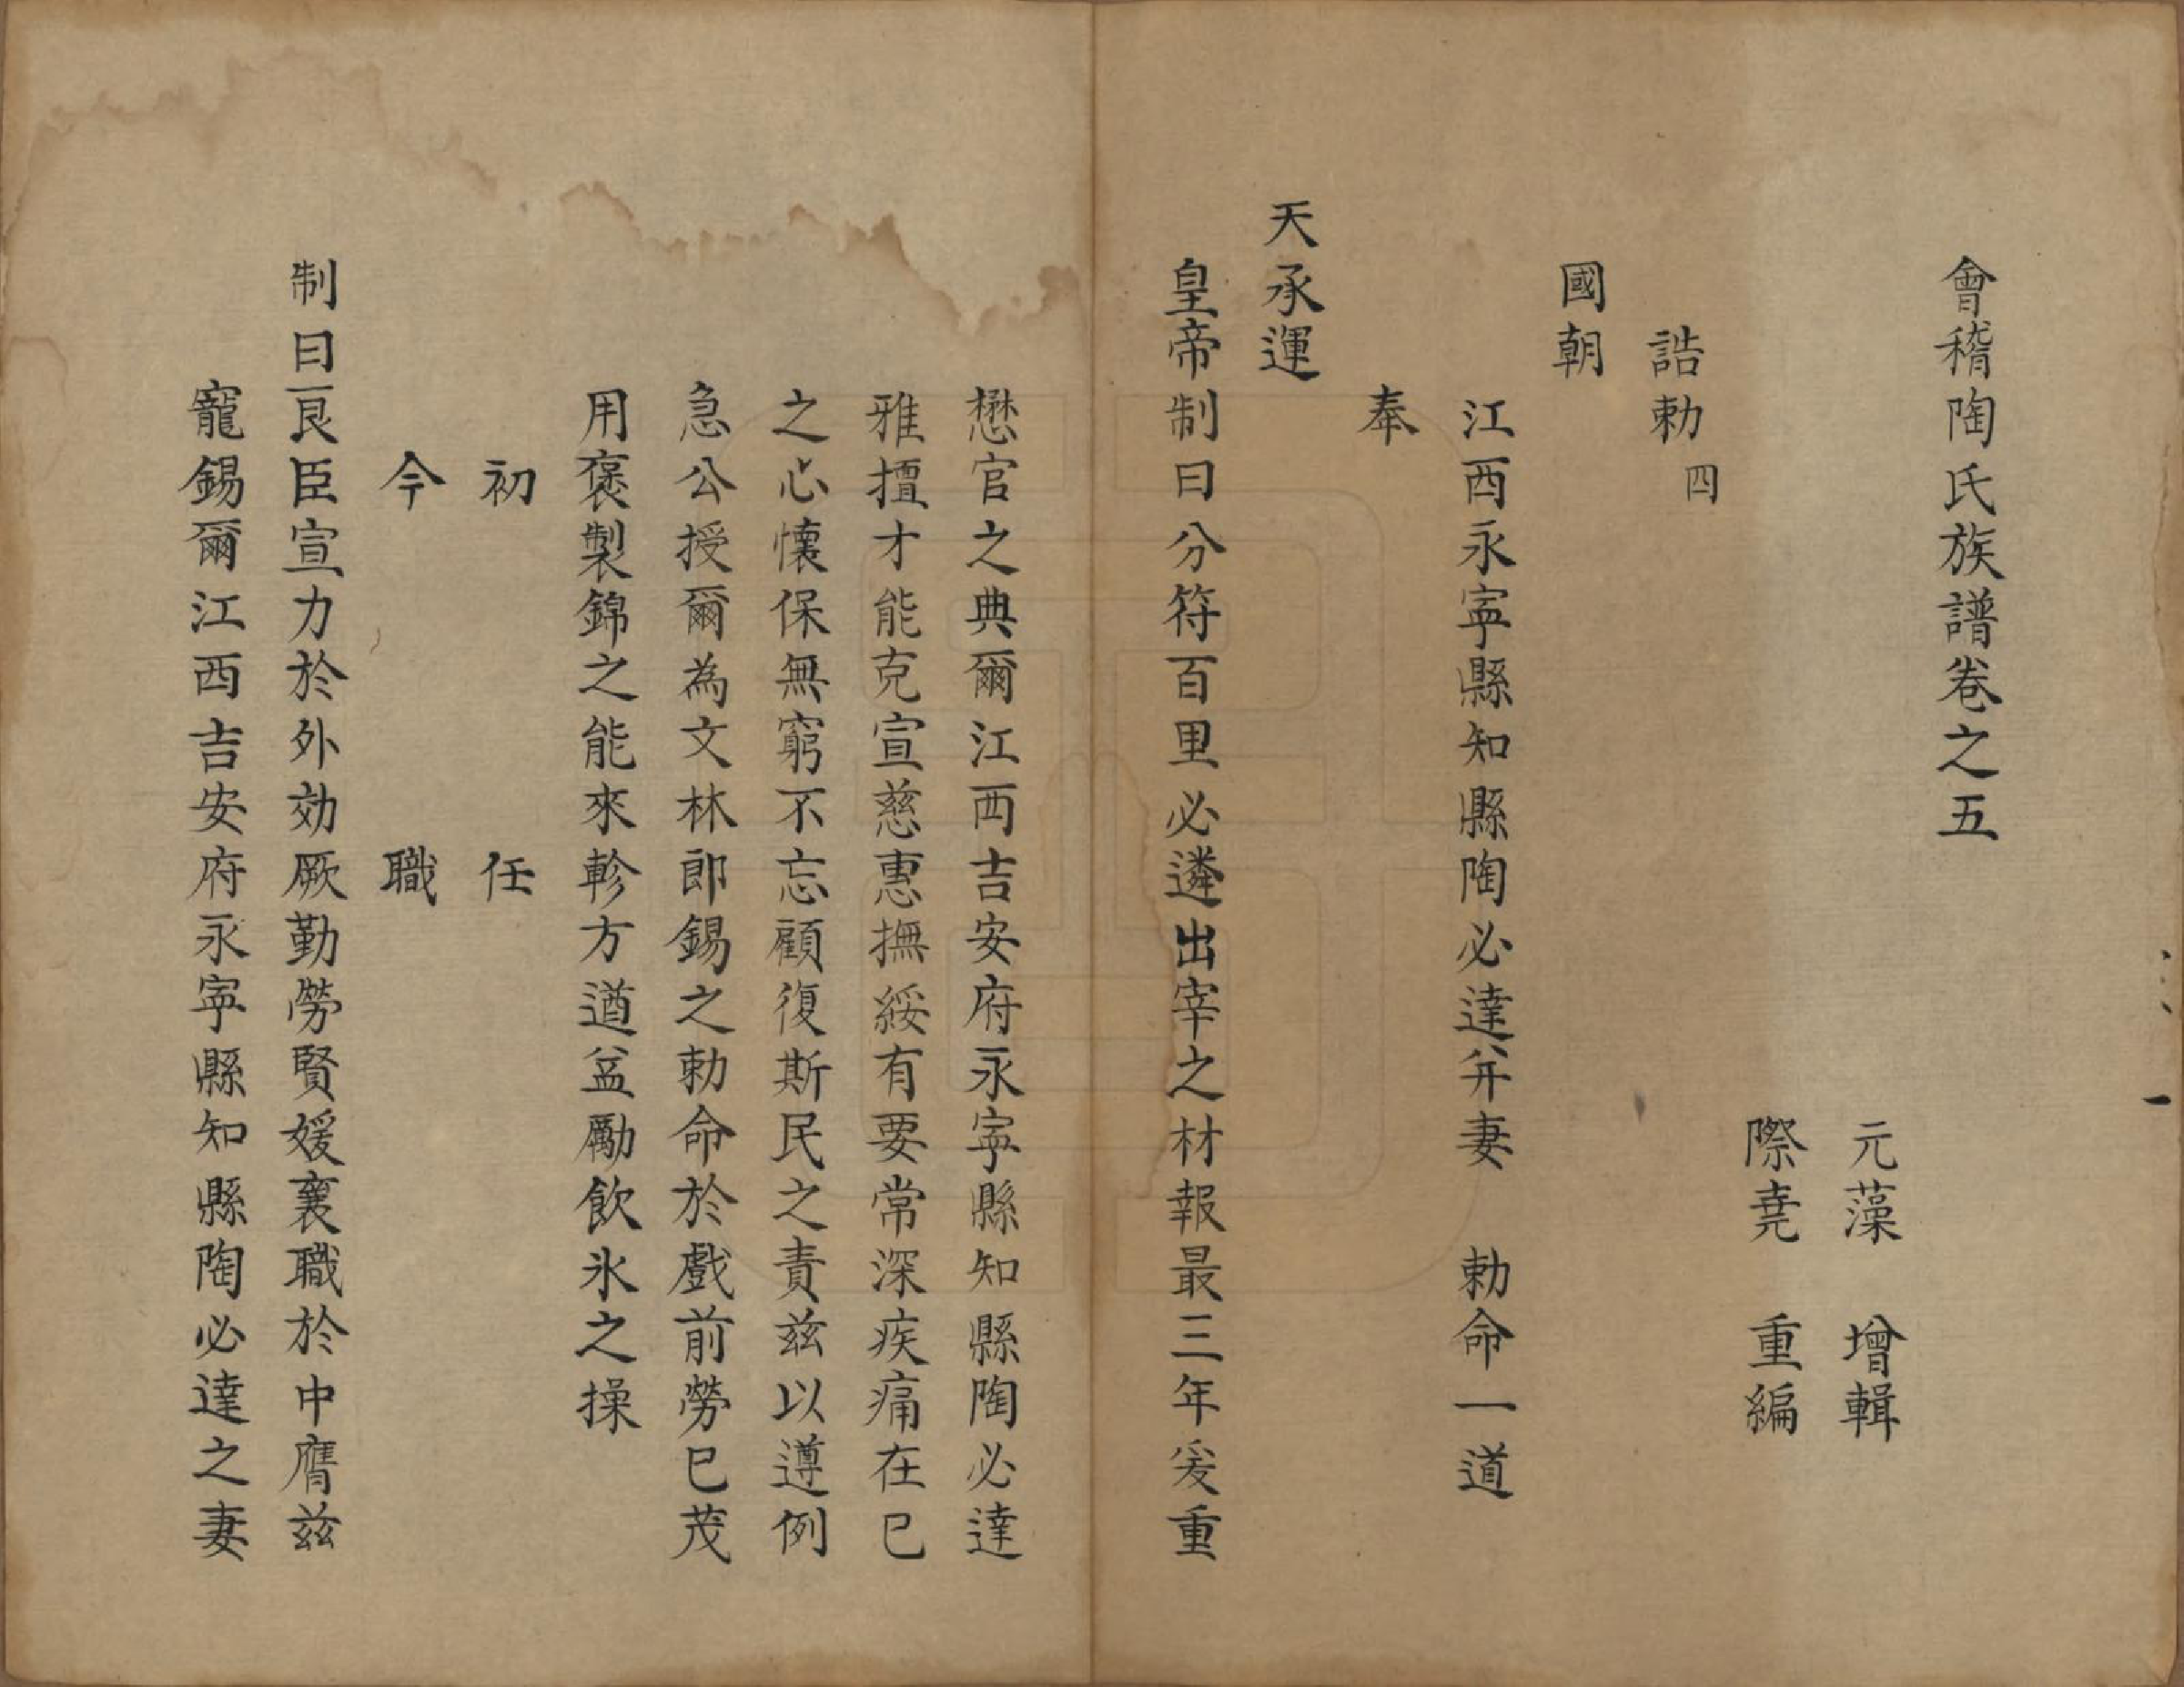 會稽陶氏族譜卷之五
元藻 增輯
際堯 重編
誥勅四
國朝
江西永寧縣知縣陶必達并妻 勅命一道
奉
天承運
皇帝制曰分符百里必遴出宰之材報最三年爰重
懋官之典爾江西吉安府永寧縣知縣陶必達
雅擅才能克宣慈惠撫綏有要常深疾痛在已
之心懷保無窮不忘顧復斯民之責茲以遵例
急公授爾為文林郎錫之勅命於戲前勞已茂
用褒製錦之能來軫方遒益勵飲氷之操
初 任
今 職
制曰良臣宣力於外効厥勤勞賢媛襄職於中膺茲
寵錫爾江西吉安府永寧縣知縣陶必達之妻
一